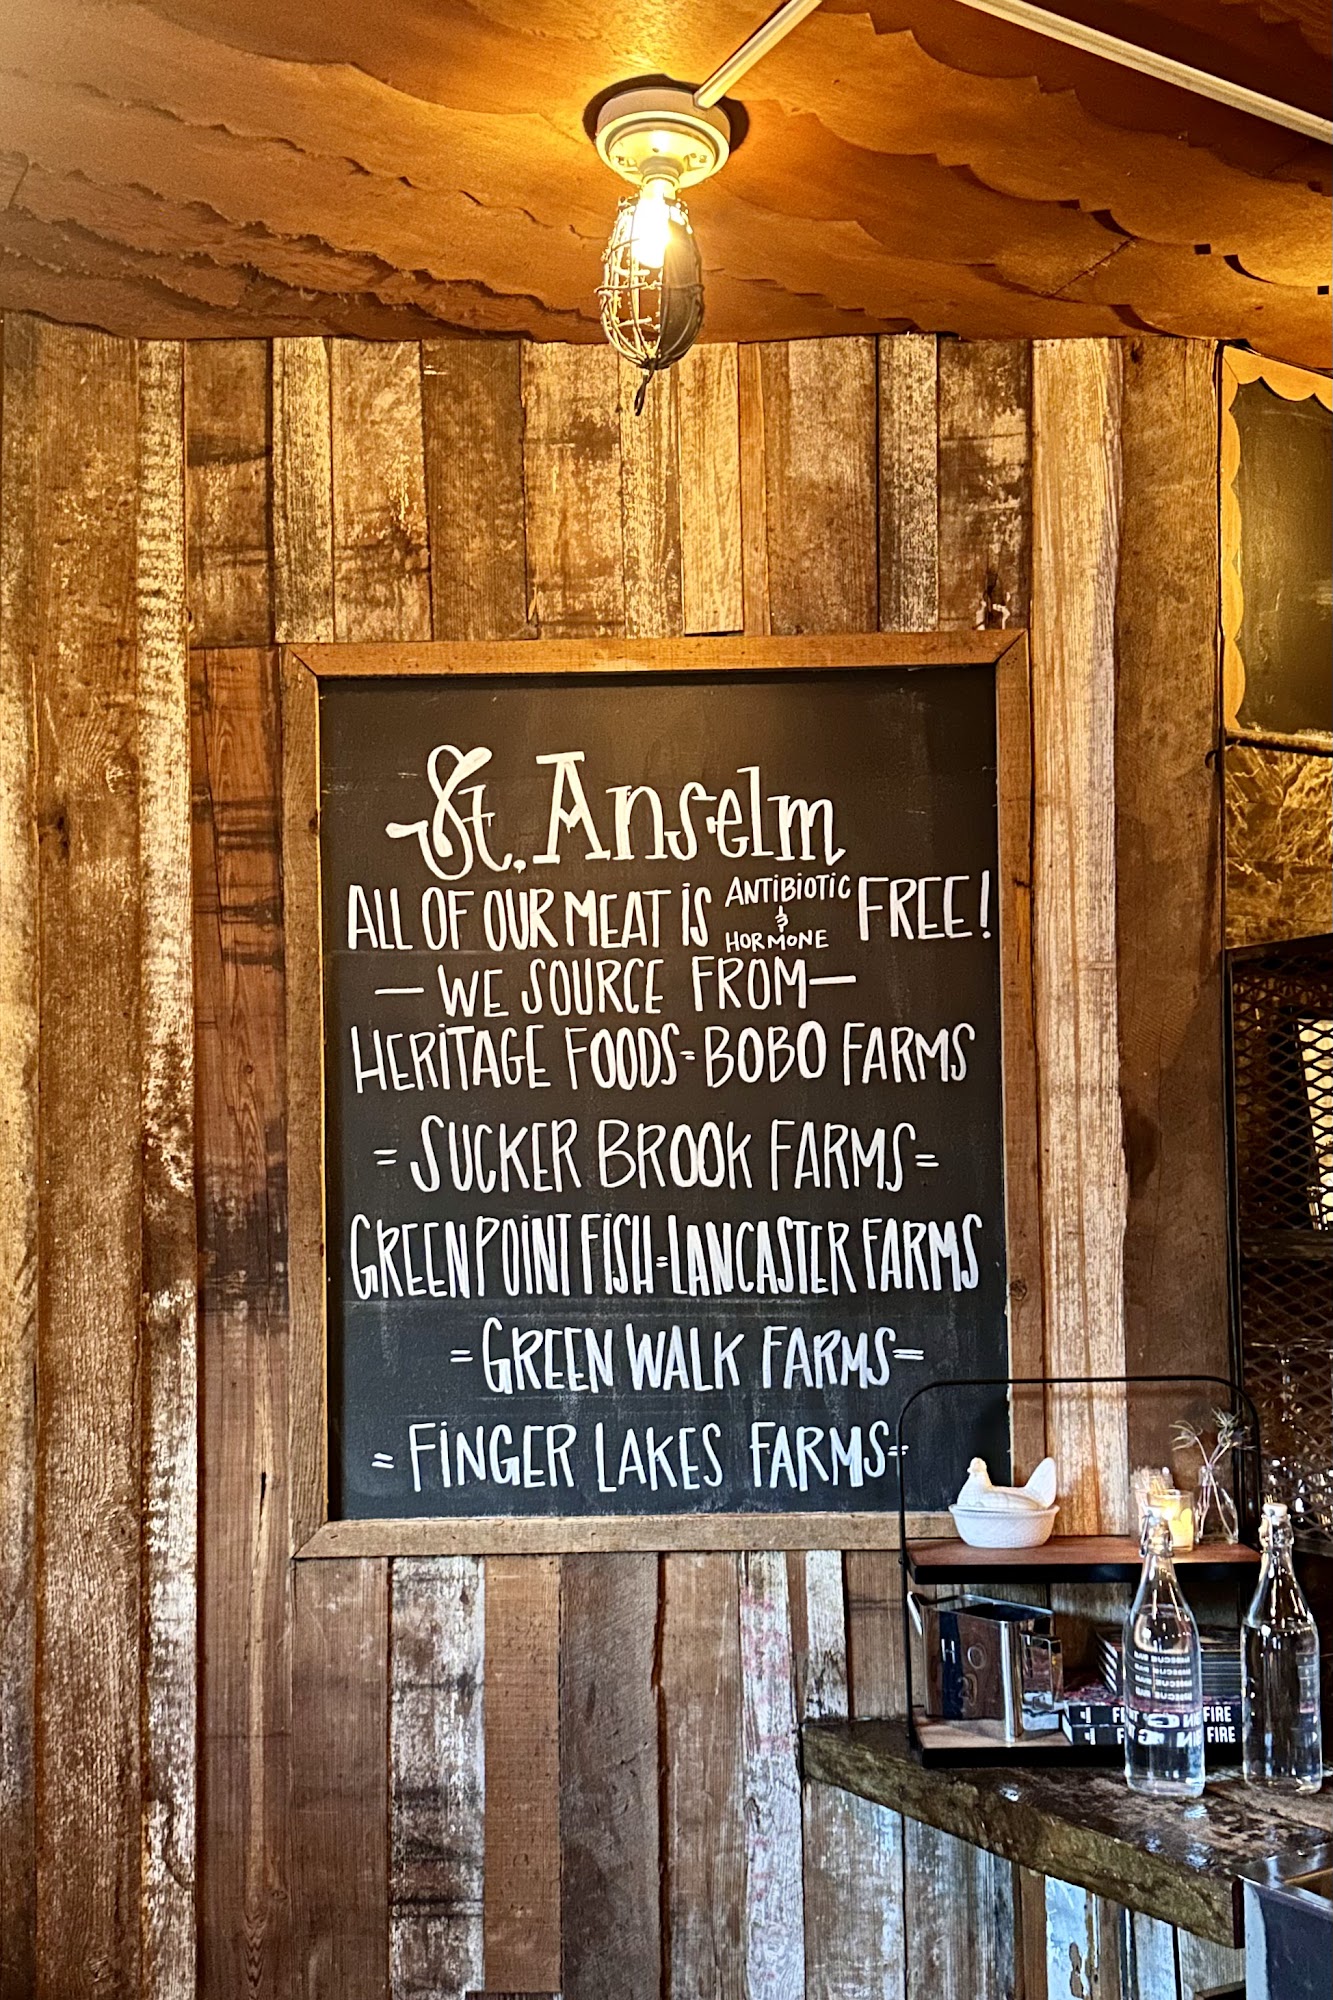 St. Anselm
ALL OF OUR MEAT IS ANTIBIOTIC & HORMONE FREE!
— WE SOURCE FROM —
HERITAGE FOODS = BOBO FARMS
= SUCKER BROOK FARMS =
GREENPOINT FISH = LANCASTER FARMS
= GREEN WALK FARMS =
= FINGER LAKES FARMS =
H O
FIRE
FIRE